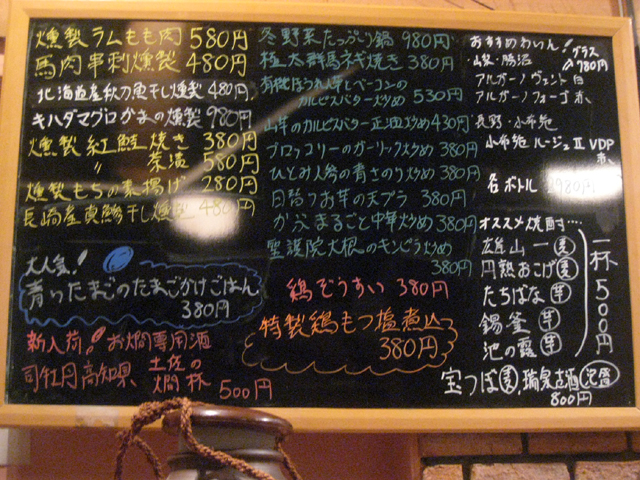 燻製ラムもも肉 580円
馬肉串刺燻製 480円
北海道産秋刀魚干し燻製 480円
キハダマグロかまの燻製 980円
燻製紅鮭焼き 380円
〃 茶漬 580円
燻製もちの素揚げ 280円
長崎産真鯵干し燻製 480円
大人気!
青いたまごのたまごかけごはん
380円
新入荷! お燗専用酒
司牡丹 高知県 土佐の
燗杯 500円
冬野菜たっぷり鍋 980円
極太群馬ネギ焼き 380円
有機ほうれん草しベーコンの
カルピスバター炒め 530円
山芋のカルピスバター正油炒め 430円
ブロッコリーのガーリック炒め 380円
ひとみ人参の青さのり炒め 380円
日替りお芋の天プラ 380円
かぶまるごと中華炒め 380円
聖護院大根のキンピラ炒め
380円
鶏ぞうすい 380円
特製鶏もつ塩煮込
380円
おすすめわいん! グラス
山梨・勝沼 980円
アルガーノ ヴェント 白
アルガーノ フォーゴ 赤
長野・小布施
小布施 ルージュ II VDP
赤
各ボトル 980円
オススメ焼酎…
広島 山一 麦
円熟おこげ 麦
たちばな 芋
錫釜 芋
池の露 芋
一杯500円
宝つぼ 麦, 瑞泉古酒 泡盛
800円